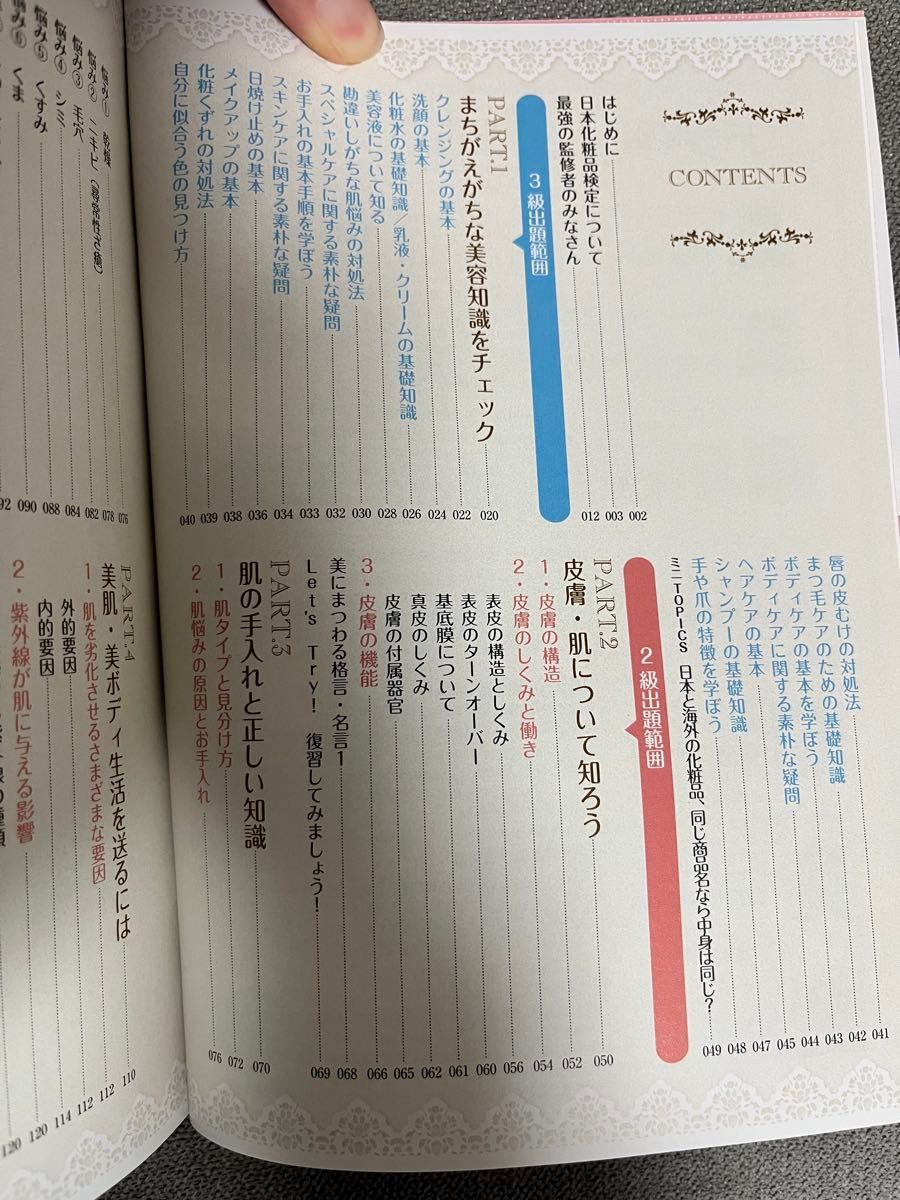 CONTENTS
はじめに 002
日本化粧品検定について 003
最強の監修者のみなさん 012
3級出題範囲
PART.1
まちがえがちな美容知識をチェック 020
クレンジングの基本 022
洗顔の基本 024
化粧水の基礎知識/乳液・クリームの基礎知識 026
美容液について知る 028
勘違いしがちな肌悩みの対処法 030
スペシャルケアに関する素朴な疑問 032
お手入れの基本手順を学ぼう 033
スキンケアに関する素朴な疑問 034
日焼け止めの基本 036
メイクアップの基本 038
化粧くずれの対処法 039
自分に似合う色の見つけ方 040
唇の皮むけの対処法 041
まつ毛ケアのための基礎知識 042
ボディケアの基本を学ぼう 043
ボディケアに関する素朴な疑問 044
ヘアケアの基本 045
シャンプーの基礎知識 047
手や爪の特徴を学ぼう 048
ミニTOPICS 日本と海外の化粧品、同じ商品名なら中身は同じ? 049
2級出題範囲
PART.2
皮膚・肌について知ろう 050
1・皮膚の構造 052
2・皮膚のしくみと働き 054
表皮の構造としくみ 056
表皮のターンオーバー 060
基底膜について 061
真皮のしくみ 062
皮膚の付属器官 065
3・皮膚の機能 066
美にまつわる格言・名言1 068
Let's Try! 復習してみましょう! 069
PART.3
肌の手入れと正しい知識 070
1・肌タイプと見分け方 072
2・肌悩みの原因とお手入れ 076
悩み① 乾燥 076
悩み② ニキビ(尋常性ざ瘡) 078
悩み③ 毛穴 082
悩み④ シミ 084
悩み⑤ くすみ 088
悩み⑥ くま 090
PART.4
美肌・美ボディ生活を送るには 110
1・肌を劣化させるさまざまな要因 112
外的要因 112
内的要因 114
2・紫外線が肌に与える影響 120
120